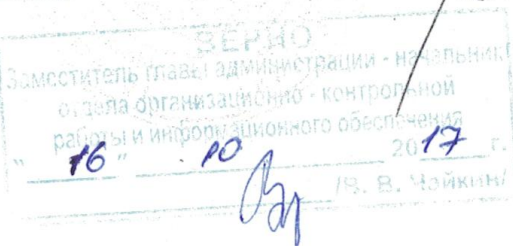 ВЕРНО
Заместитель главы администрации - начальник
отдела организационно - контрольной
работы и информационного обеспечения
"16" 10 2017 г.
/В. В. Чайкин/